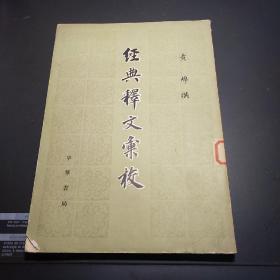 經典釋文彙校
黄焯撰
中華書局